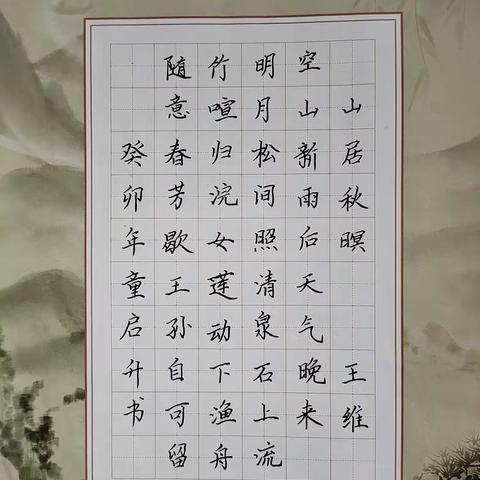 山居秋暝 王维
空山新雨后天气晚来
明月松间照清泉石上流
竹喧归浣女莲动下渔舟
随意春芳歇王孙自可留
癸卯年童启升书